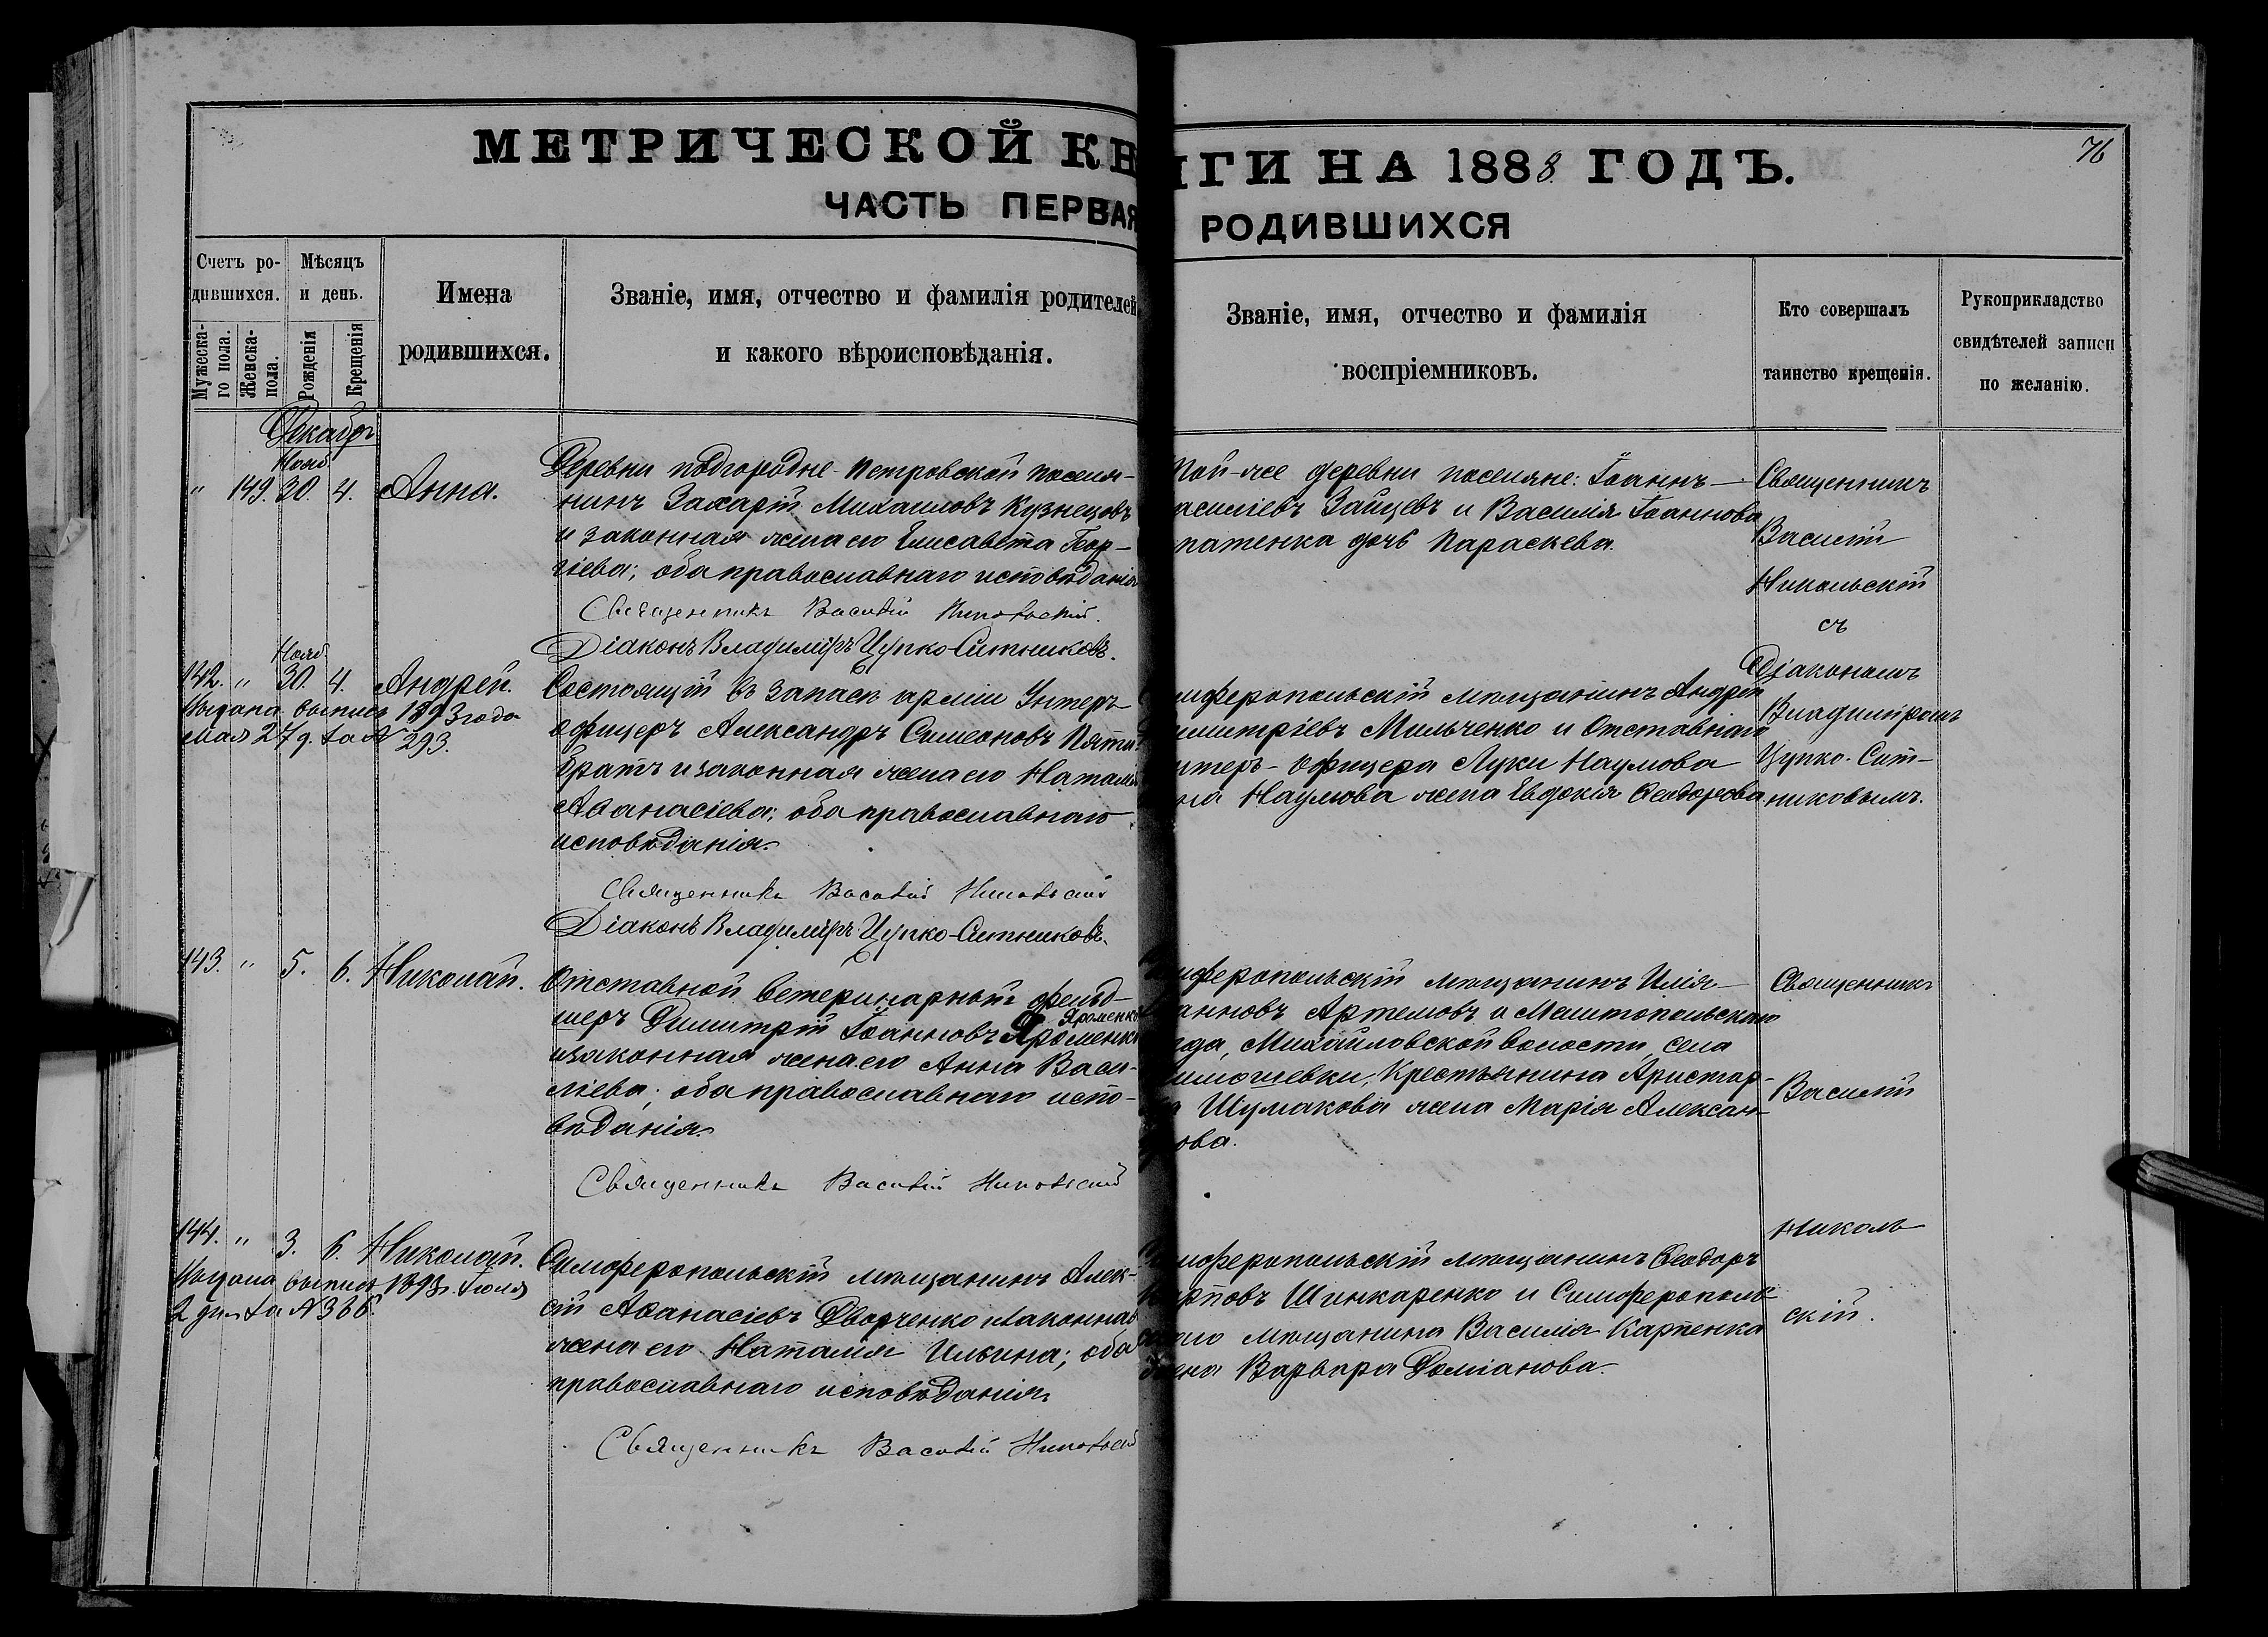 МЕТРИЧЕСКОЙ КН
ИГИ НА 1888 ГОДЪ.
76
ЧАСТЬ ПЕРВАЯ
РОДИВШИХСЯ
Счетъ ро-
дившихся.
Мужеска-
го пола.
Женска-
пола.
Мѣсяцъ
и день.
Рожденія
Крещенія
Имена
родившихся.
Званіе, имя, отчество и фамилія родителей
и какого вѣроисповѣданія.
Званіе, имя, отчество и фамилія
воспріемниковъ.
Кто совершалъ
таинство крещенія.
Рукоприкладство
свидѣтелей записи
по желанію.
Декабрь
Нояб.
" 149. 30. 4. Анна.
Деревни подгородне-Петровской поселя-
нинъ Захарій Михаиловъ Кузнецовъ
и законная жена его Елисавета Геор-
гіева; оба православнаго исповѣданія
Священникъ Василій Никольскій.
Діаконъ Владиміръ Цупко-Ситниковъ.
Той-же деревни поселяне: Іоаннъ
асиліевъ Зайцевъ и Василія Іоаннова
патенка дочь Параскева.
Священникъ
Василій
Никольскій
съ
Діакономъ
Владиміромъ
Цупко-Сит-
никовымъ.
Нояб.
142. " 30. 4. Андрей.
Выдана выпись 1893 года
мая 27 д. за № 293.
Состоящій въ запасѣ арміи Унтеръ-
офицеръ Александръ Симеоновъ Пяти
братъ и законная жена его Наталія
Аѳанасіева; оба православнаго
исповѣданія.
Священникъ Василій Никольскій
Діаконъ Владиміръ Цупко-Ситниковъ.
имферопольскій мѣщанинъ Андрей
имитріевъ Мильченко и Отставнаго
нтеръ-офицера Луки Наумова
на Наумова жена Евдокія Ѳеодорова
143. " 5. 6. Николай.
Отставной ветеринарный фельд-
Яроменко
шеръ Димитрій Іоанновъ Яроменко
и законная жена его Анна Васи-
ліева; оба православнаго испо-
вѣданія.
Священникъ Василій Никольскій
имферопольскій мѣщанинъ Илія
анновъ Артемовъ и Мелитопольскаго
зда, Михайловской волости, села
имошевки, Крестьянина Аристар-
а Шумакова жена Марія Алексан-
рова.
Священникъ
Василій
Николь
скій.
144. " 3. 6. Николай.
Выдана выпись 1893 г. Іюля
2 дня за № 366.
Симферопольскій мѣщанинъ Алек-
сій Аѳанасіевъ Дворченко и законная
жена его Наталія Ильина; оба
православнаго исповѣданія.
Священникъ Василій Никольскій
имферопольскій мѣщанинъ Ѳеодоръ
рповъ Шинкаренко и Симферополь-
скаго мѣщанина Василія Карпенка
жена Варвара Доміанова.